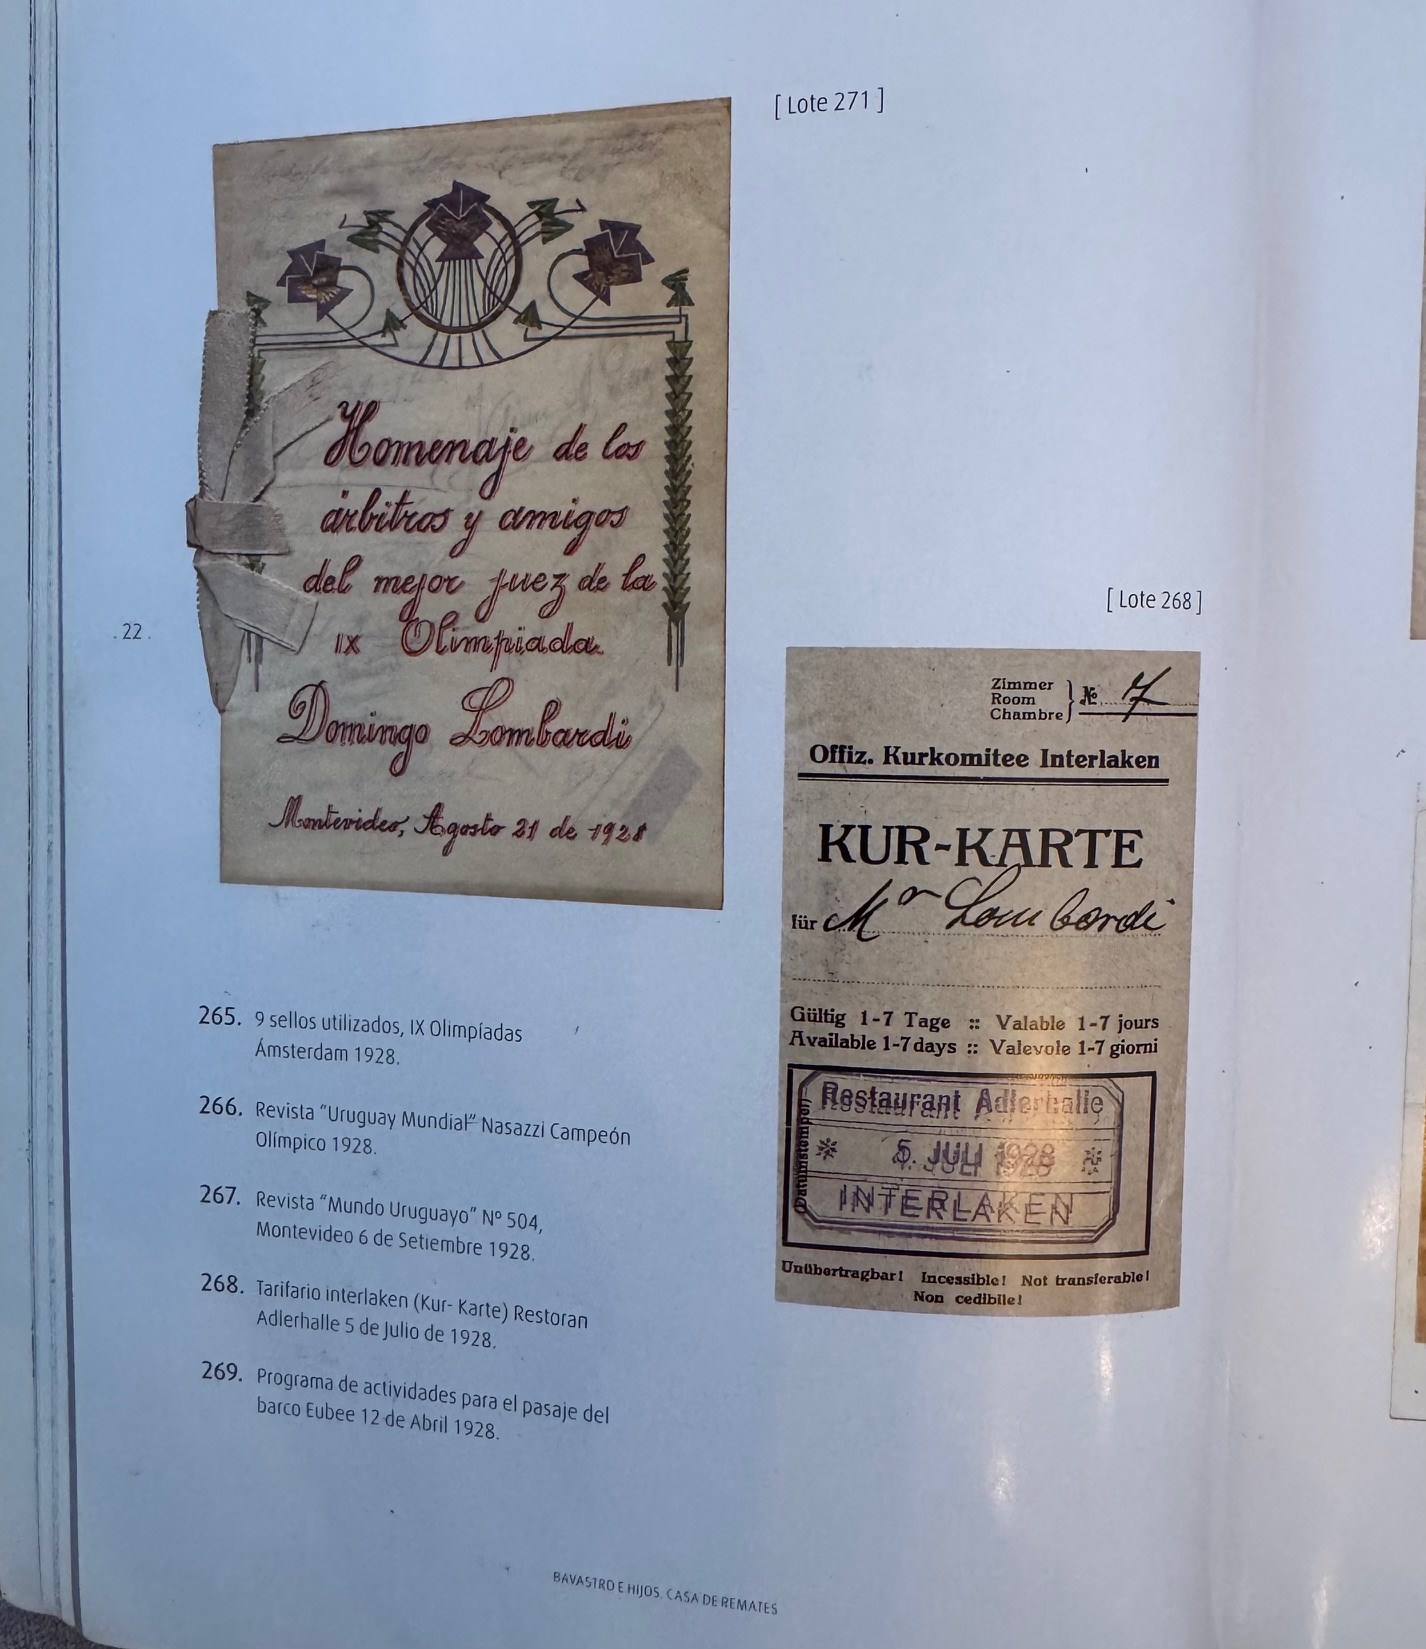 [ Lote 271 ]
Homenaje de los
árbitros y amigos
del mejor juez de la
IX Olimpiada.
Domingo Lombardi
Montevideo, Agosto 21 de 1928
. 22 .
[ Lote 268 ]
Zimmer
Room
Chambre
№ 7
Offiz. Kurkomitee Interlaken
KUR-KARTE
für Mr Lombardi
Gültig 1-7 Tage :: Valable 1-7 jours
Available 1-7 days :: Valevole 1-7 giorni
(Datumstempel)
Restaurant Adlerhalle
5. JULI 1928
INTERLAKEN
Unübertragbar! Incessible! Not transferable!
Non cedibile!
265. 9 sellos utilizados, IX Olimpíadas
Ámsterdam 1928.
266. Revista “Uruguay Mundial” Nasazzi Campeón
Olímpico 1928.
267. Revista “Mundo Uruguayo” Nº 504,
Montevideo 6 de Setiembre 1928.
268. Tarifario interlaken (Kur- Karte) Restoran
Adlerhalle 5 de Julio de 1928.
269. Programa de actividades para el pasaje del
barco Eubee 12 de Abril 1928.
BAVASTRO E HIJOS. CASA DE REMATES